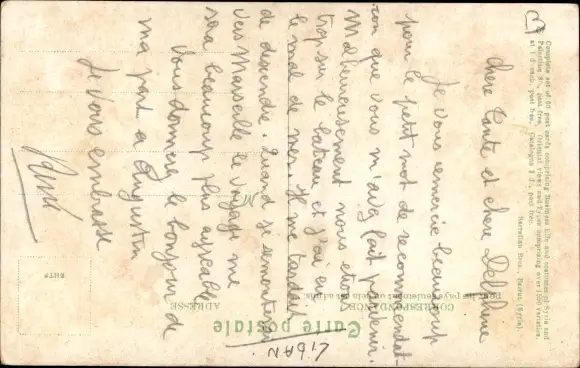 Complete set of 60 post cards comprising Business life and costumes of Syria and
Palestine post free. Oriental views and types comprising over 1500 varieties
at post free. Catalogue post free.
Sarrafian Bros., Beirut (Syria).
Carte postale
CORRESPONDANCE
ADRESSE
LIBAN.
chère tante et chère Delphine
Je vous remercie beaucoup
pour le petit mot de recommendat-
ion que vous m'avez fait parvenir.
Malheureusement nous etions
trop sur le bateau et j'ai eu
le mal de mer. Je me tardait
de descendre. Quand je remonterai
vers Marseille le voyage me
sera beaucoup plus agreable
Vous donnerez le bonjour de
ma part a Augustin
Je vous embrasse
René